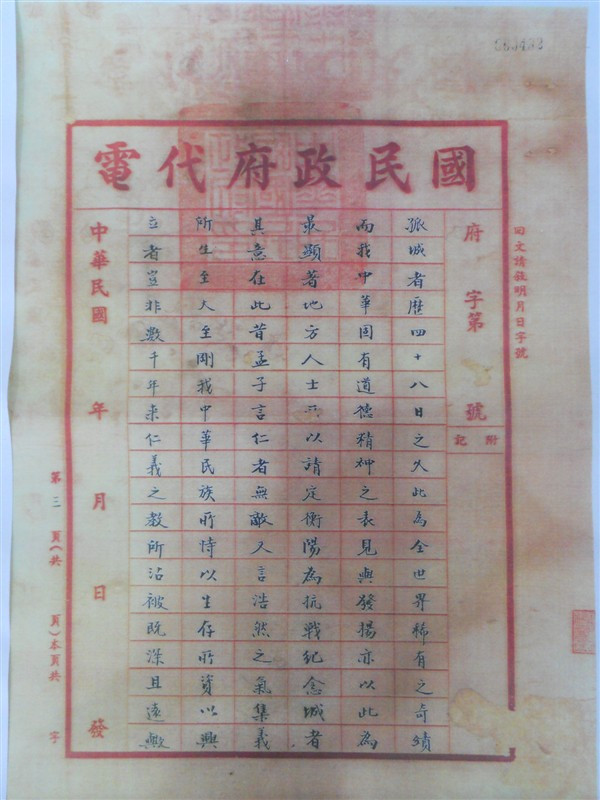 國民政府代電
回文請敘明月日字號
府 字第 號
附記
孤城者歷四十八日之久此為全世界稀有之奇績
而我中華固有道德精神之表見與發揚亦以此為
最顯著地方人士以請定衡陽為抗戰紀念城者
其意在此昔孟子言仁者無敵又言浩然之氣集義
所生至大至剛我中華民族所恃以生存所資以興
立者豈非數千年來仁義之教所沾被既深且遠歟
中華民國 年 月 日 發
第三頁(共 頁)本頁共 字